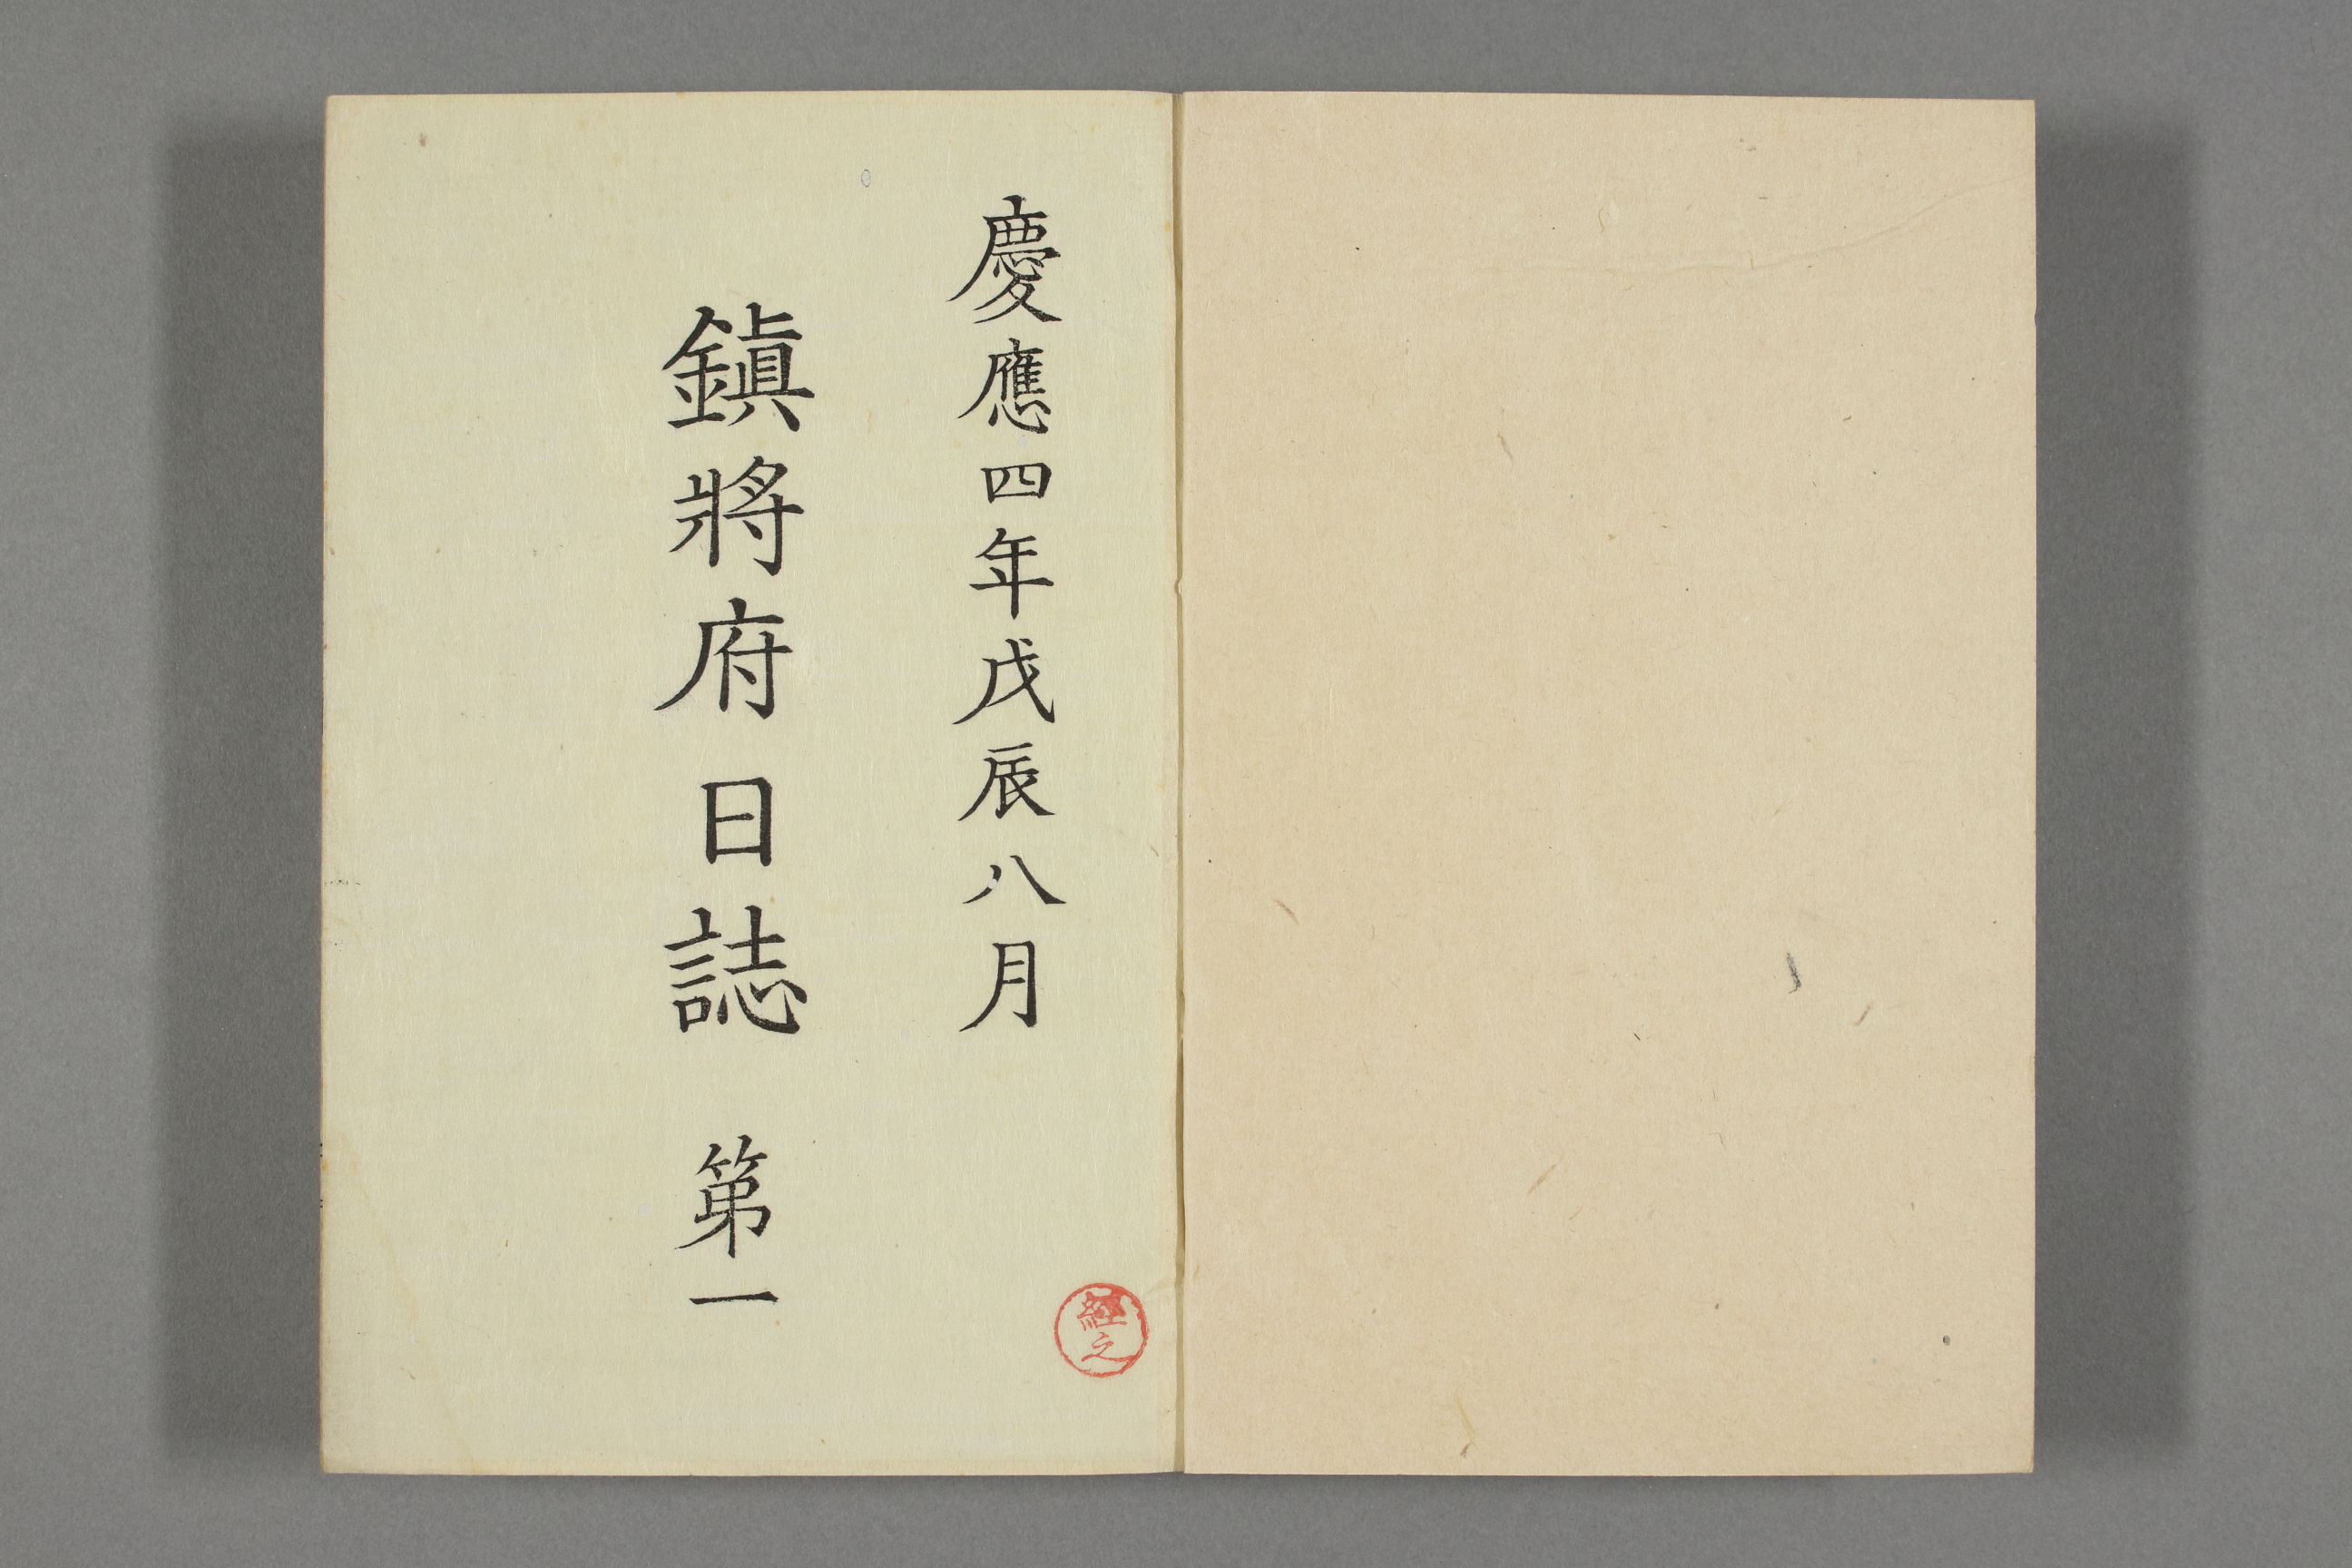 慶應四年戊辰八月
鎭將府日誌 第一
經之